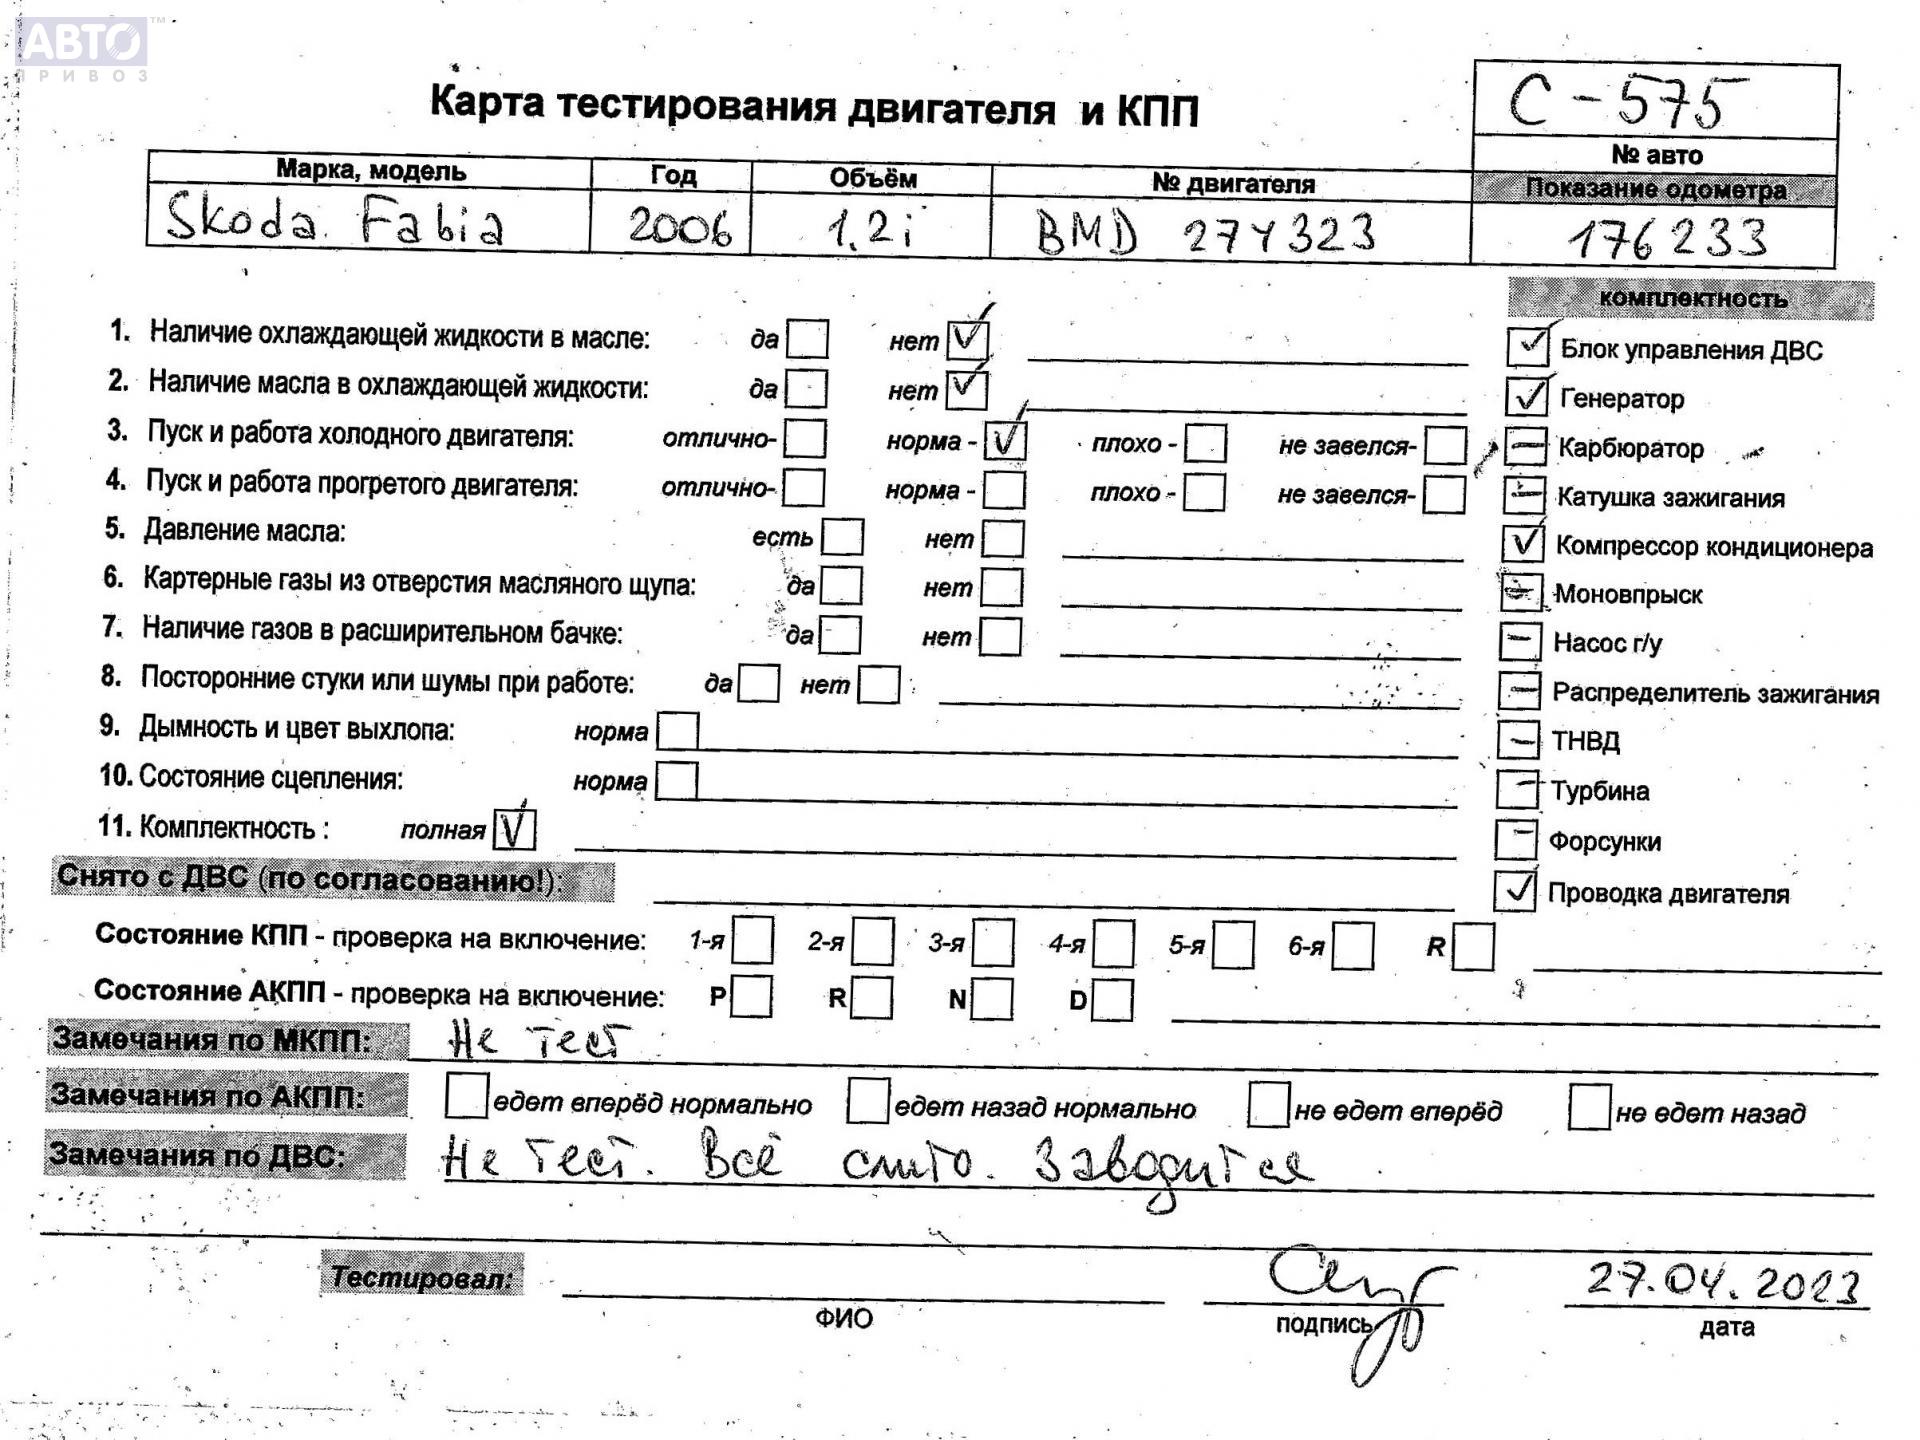 АВТО ТМ
ПРИВОЗ
Карта тестирования двигателя и КПП
С-575
№ авто
Марка, модель Год Объём № двигателя Показание одометра
Skoda Fabia 2006 1.2i BMD 274323 176233
комплектность
1. Наличие охлаждающей жидкости в масле: да нет Блок управления ДВС
2. Наличие масла в охлаждающей жидкости: да нет Генератор
3. Пуск и работа холодного двигателя: отлично- норма - плохо - не завелся- Карбюратор
4. Пуск и работа прогретого двигателя: отлично- норма - плохо - не завелся- Катушка зажигания
5. Давление масла: есть нет Компрессор кондиционера
6. Картерные газы из отверстия масляного щупа: да нет Моновпрыск
7. Наличие газов в расширительном бачке: да нет Насос г/у
8. Посторонние стуки или шумы при работе: да нет Распределитель зажигания
9. Дымность и цвет выхлопа: норма ТНВД
10. Состояние сцепления: норма Турбина
11. Комплектность : полная Форсунки
Снято с ДВС (по согласованию!): Проводка двигателя
Состояние КПП - проверка на включение: 1-я 2-я 3-я 4-я 5-я 6-я R
Состояние АКПП - проверка на включение: P R N D
Замечания по МКПП: Не тест
Замечания по АКПП: едет вперёд нормально едет назад нормально не едет вперёд не едет назад
Замечания по ДВС: Не тест. Всё слито. Заводится
Тестировал: 27.04.2023
ФИО подпись дата